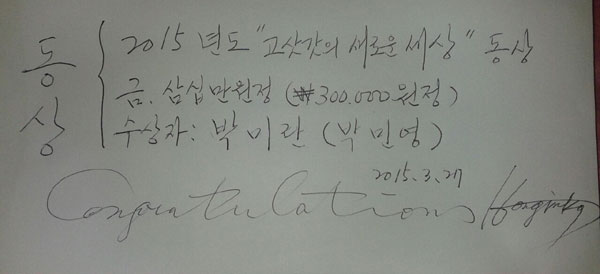 동상
2015 년도 "고삿갓의 새로운 세상" 동상
금. 삼십만원정 (₩300.000원정)
수상자: 박미란 (박민영)
2015.3.27
Congratulations